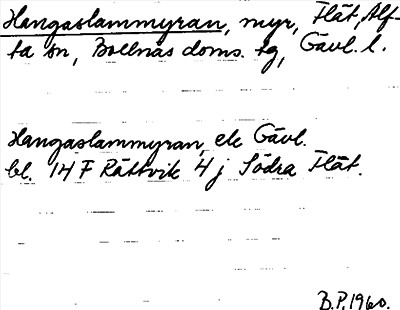 Hangaslammyran, myr, Flät, Alf-
ta sn, Bollnäs doms. tg, Gävl. l.
Hangaslammyran, ek Gävl.
bl. 14 F Rättvik 4 j Södra Flät.
B.P. 1960.